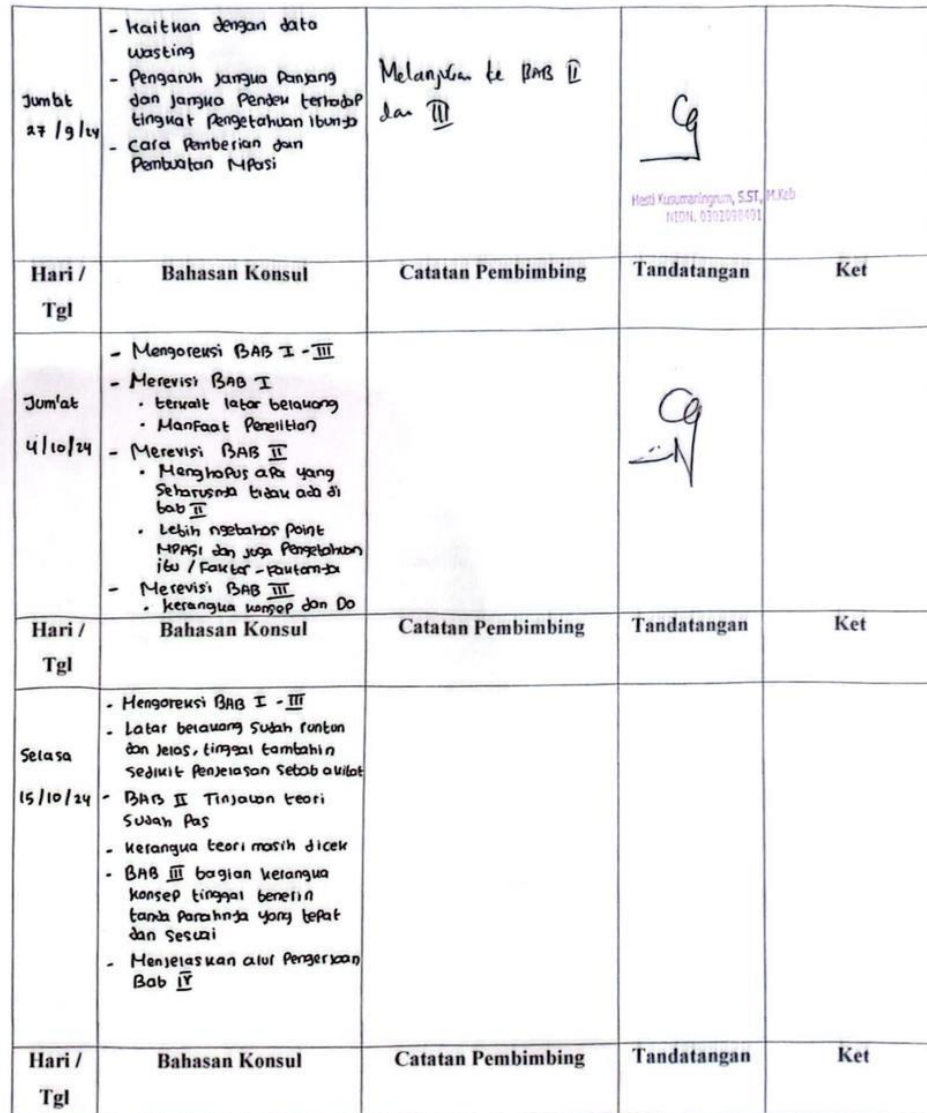 - Kaitkan dengan data
wasting
- Pengaruh jangka Panjang
dan jangka Pendek terhadap
tingkat Pengetahuan Ibunya
- Cara Pemberian dan
Pembuatan MPasi
Jumbt
27/9/24
Melanjutkan ke BAB II
dan III
Hesti Kusumaningrum, S.ST, M.Keb
NIDN. 0302098401
Hari / Bahasan Konsul Catatan Pembimbing Tandatangan Ket
Tgl
Jum'at
4/10/24
- Mengoreksi BAB I - III
- Merevisi BAB I
• terkait latar belakang
• Manfaat Penelitian
- Merevisi BAB II
• Menghapus apa yang
Seharusnya tidak ada di
bab II
• Lebih ngebahas Point
MPASI dan juga Pengetahuan
ibu / Faktor - faktornya
- Merevisi BAB III
• kerangka konsep dan Do
Hari / Bahasan Konsul Catatan Pembimbing Tandatangan Ket
Tgl
Selasa
15/10/24
- Mengoreksi BAB I - III
- Latar belakang Sudah runtun
dan Jelas, tinggal tambahin
sedikit Penjelasan Sebab akibat
- BAB II Tinjauan teori
Sudah Pas
- Kerangka teori masih dicek
- BAB III bagian kerangka
konsep tinggal benerin
tanda Panahnya yang tepat
dan Sesuai
- Menjelaskan alur Pengerjaan
Bab IV
Hari / Bahasan Konsul Catatan Pembimbing Tandatangan Ket
Tgl